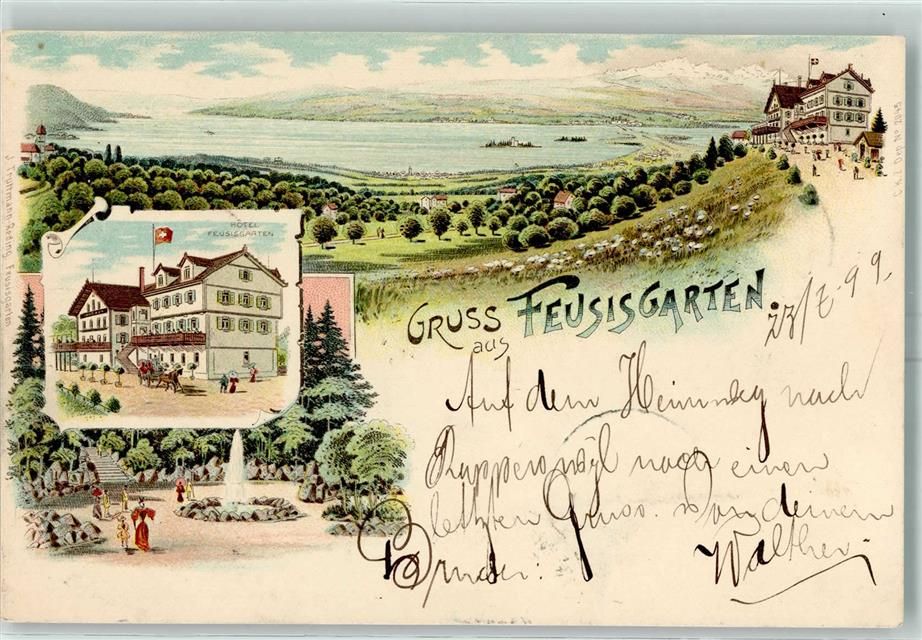 HÔTEL
FEUSISGARTEN
GRUSS
aus
FEUSISGARTEN
J. Truttmann-Reding, Feusisgarten
23/X 99.
Auf dem Heimweg nach
Rapperswyl noch einen
letzten Gruss. von deinem
Bruder:
Walther.